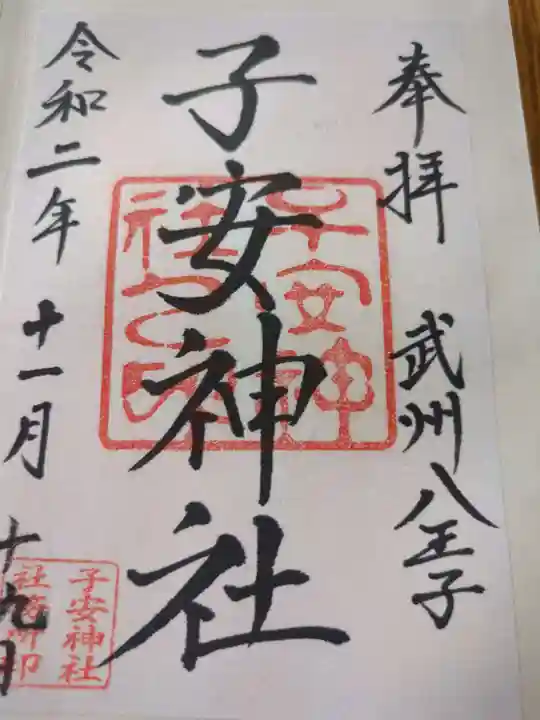 奉拝 武州八王子
子安神社
子安神
社之印
令和二年 十一月 十九日
子安神社
社務所印